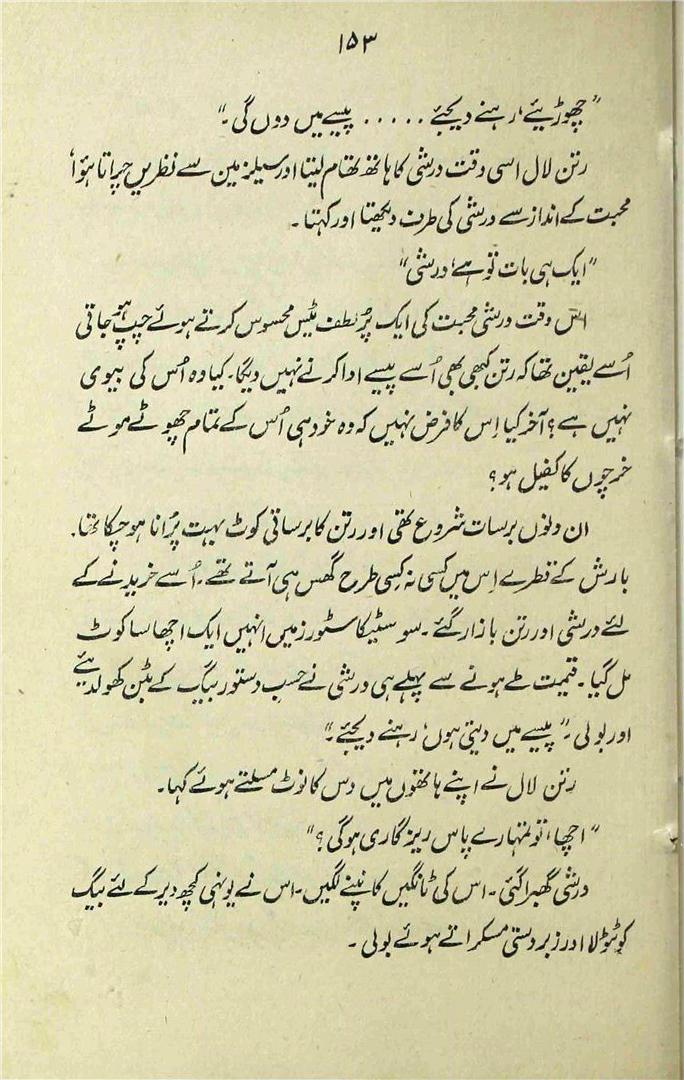 ۱۵۳
"چھوڑیئے، رہنے دیجئے ..... پیسے میں دوں گی۔"
رتن لال اسی وقت درشی کا ہاتھ تھام لیتا اور سیلز مین سے نظریں چراتا ہؤا
محبت کے انداز سے درشی کی طرف دیکھتا اور کہتا۔
"ایک ہی بات تو ہے، درشی"
اس وقت درشی محبت کی ایک پُر لطف ٹیس محسوس کرتے ہوئے چپ ہو جاتی
اُسے یقین تھا کہ رتن کبھی بھی اُسے پیسے ادا کرنے نہیں دیگا۔ کیا وہ اُس کی بیوی
نہیں ہے؟ آخر کیا اِس کا فرض نہیں کہ وہ خود ہی اُس کے تمام چھوٹے موٹے
خرچوں کا کفیل ہو؟
ان دنوں برسات شروع تھی اور رتن کا برساتی کوٹ بہت پرُانا ہو چکا تھا۔
بارش کے قطرے اِس میں کسی نہ کسِی طرح گھس ہی آتے تھے۔ اُسے خریدنے کے
لئے درشی اور رتن بازار گئے۔ سوسٹیکا سٹورز میں انہیں ایک اچھا سا کوٹ
مل گیا۔ قیمت طے ہونے سے پہلے ہی درشی نے حسبِ دستور بیگ کے بٹن کھولدیئے
اور بولی۔ "پیسے میں دیتی ہوں، رہنے دیجئے۔"
رتن لال نے اپنے ہاتھوں میں دس کا نوٹ مسلتے ہوئے کہا۔
"اچھا، تو تمہارے پاس ریزگاری ہوگی؟"
درشی گھبرا گئی۔ اس کی ٹانگیں کانپنے لگیں۔ اس نے یونہی کچھ دیر کے لئے بیگ
کو ٹٹولا اور زبردستی مسکراتے ہوئے بولی۔